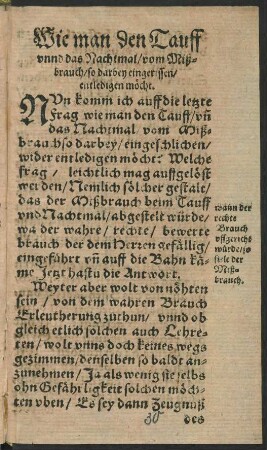 Wie man den Tauff
vnnd das Nachtmal/vom Miß-
brauch/so darbey eingerissen/
entledigen möcht.
NVn komm ich auff die letzte
Frag wie man den Tauff/vñ
das Nachtmal vom Miß-
brauch so darbey/eingeschlichen/
wider entledigen möcht? Welche
frag / leichtlich mag auffgelöst
werden/Nemlich sölcher gestalt/
das der Mißbrauch beim Tauff
vnd Nachtmal/abgestelt würde/
wa der wahre / rechte/ bewerte
brauch der dem Herren gefällig/
eingefährt vñ auff die Bahn kä-
me Jezt hastu die Antwort.
wann der
rechte
Brauch
vffgericht
würde/so
fiele der
Miß-
brauch.
Weyter aber wolt von nöhten
sein / von dem wahren Brauch
Erleutherung zuthun/ vnnd ob
gleich etlich solchen auch Lehre-
ten/ wolt vnns doch keines wegs
gezimmen/denselben so baldt an-
zunehmen / Ja als wenig sie selbs
ohn Gefährligkeit solchen möch-
ten vben/ Es sey dann Zeugnuß
des